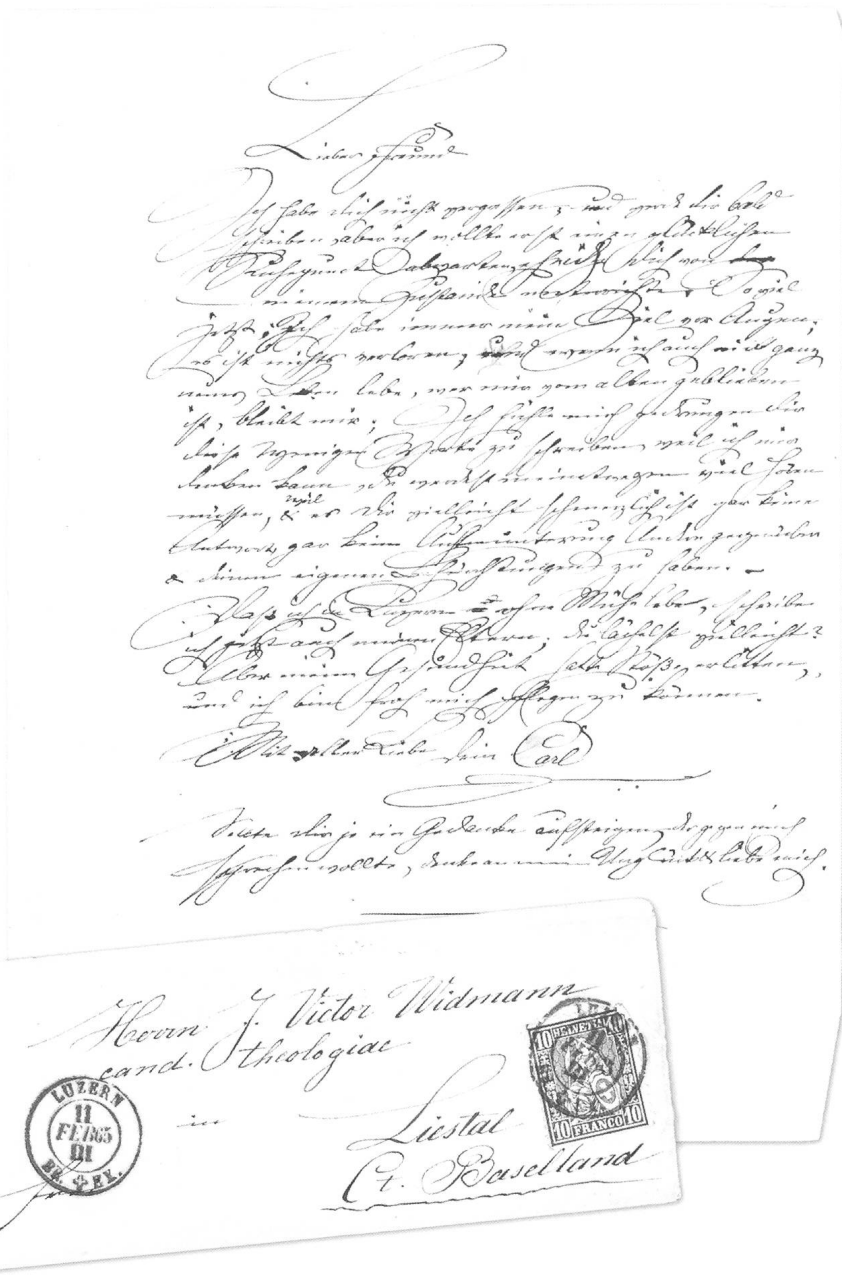 Lieber Freund
Ich habe dich nicht vergessen, und werde dir bald
schreiben, aber ich wollte erst einen glücklichen
Ruhepunct abwarten, ehe ich dich von
meinem Zustande unterrichte. So viel
jetzt: Ich habe immer mein Ziel vor Augen;
es ist nichts verloren, und wenn ich auch ein ganz
neues Leben lebe, wer mir vom alten geblieben
ist, bleibt mir; Ich fühle mich gedrungen dir
diese wenigen Worte zu schreiben, weil ich mir
denken kann, du werdest meinetwegen viel hören
müssen, & weil es dir vielleicht schmerzlich ist gar keine
Antwort, gar keine Aufmunterung Andern gegenüber
& deinen eigenen Befürchtungen zu haben. –
Daß ich in Luzern ohne Mühe lebe, schreibe
ich jetzt auch meinen Eltern; du lächelst vielleicht?
Aber meine Gesundheit hatte Stöße erlitten,
und ich bin froh mich pflegen zu können.
Mit aller Liebe dein Carl
Sollte dir je ein Gedanke aufsteigen, der gegen mich
sprechen wollte, denke an mein Unglück & liebe mich.
Herrn J. Victor Widmann
cand. theologiae
in
Liestal
Ct. Baselland
LUZERN
11
FEB 65
III
BR. EX.
10 HELVETIA 10
10 FRANCO 10